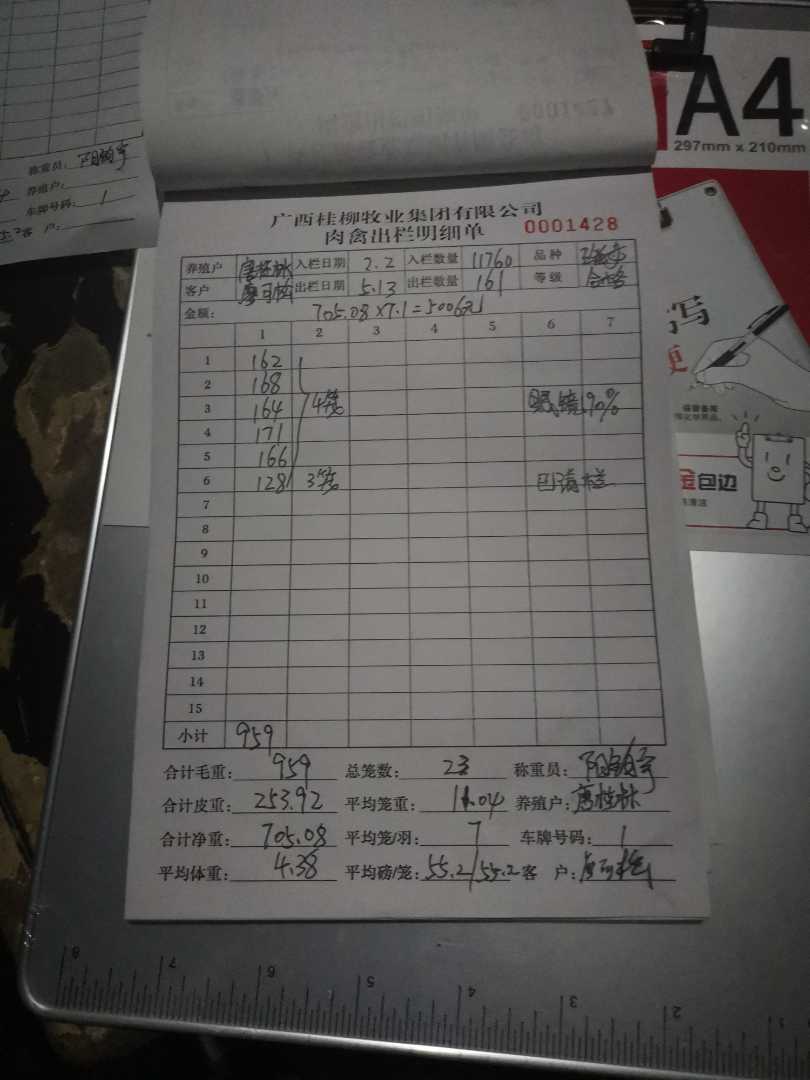 称重员：
养殖户：
车牌号码： 1
客 户：
A4
297mm x 210mm
广西桂柳牧业集团有限公司
肉禽出栏明细单 0001428
养殖户 唐桂林 入栏日期 2.2 入栏数量 11760 品种
客户 出栏日期 5.13 出栏数量 161 等级 合格
金额： 705.08×7.1=5006元
1 2 3 4 5 6 7
1 162
2 168
3 164 4笼 眼镜90%
4 171
5 166
6 128 3笼 已清栏
7
8
9
10
11
12
13
14
15
小计 959
合计毛重： 959 总笼数： 23 称重员：
合计皮重： 253.92 平均笼重： 11.04 养殖户： 唐桂林
合计净重： 705.08 平均笼/羽： 7 车牌号码： 1
平均体重： 4.38 平均磅/笼： 55.2/55.2 客 户：
写
金包边
8 7 6 5 4 3 2 1